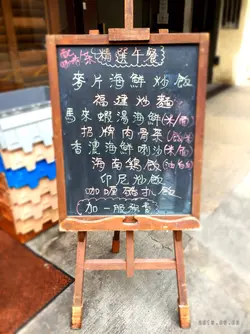 精選午餐
麥片海鮮炒飯
福建炒麵
馬來蝦湯海鮮(米/麵)
招牌肉骨茶
香濃海鮮喇沙(米/麵)
海南鷄飯(油飯)
印尼炒飯
咖喱豬扒飯
加一服務費